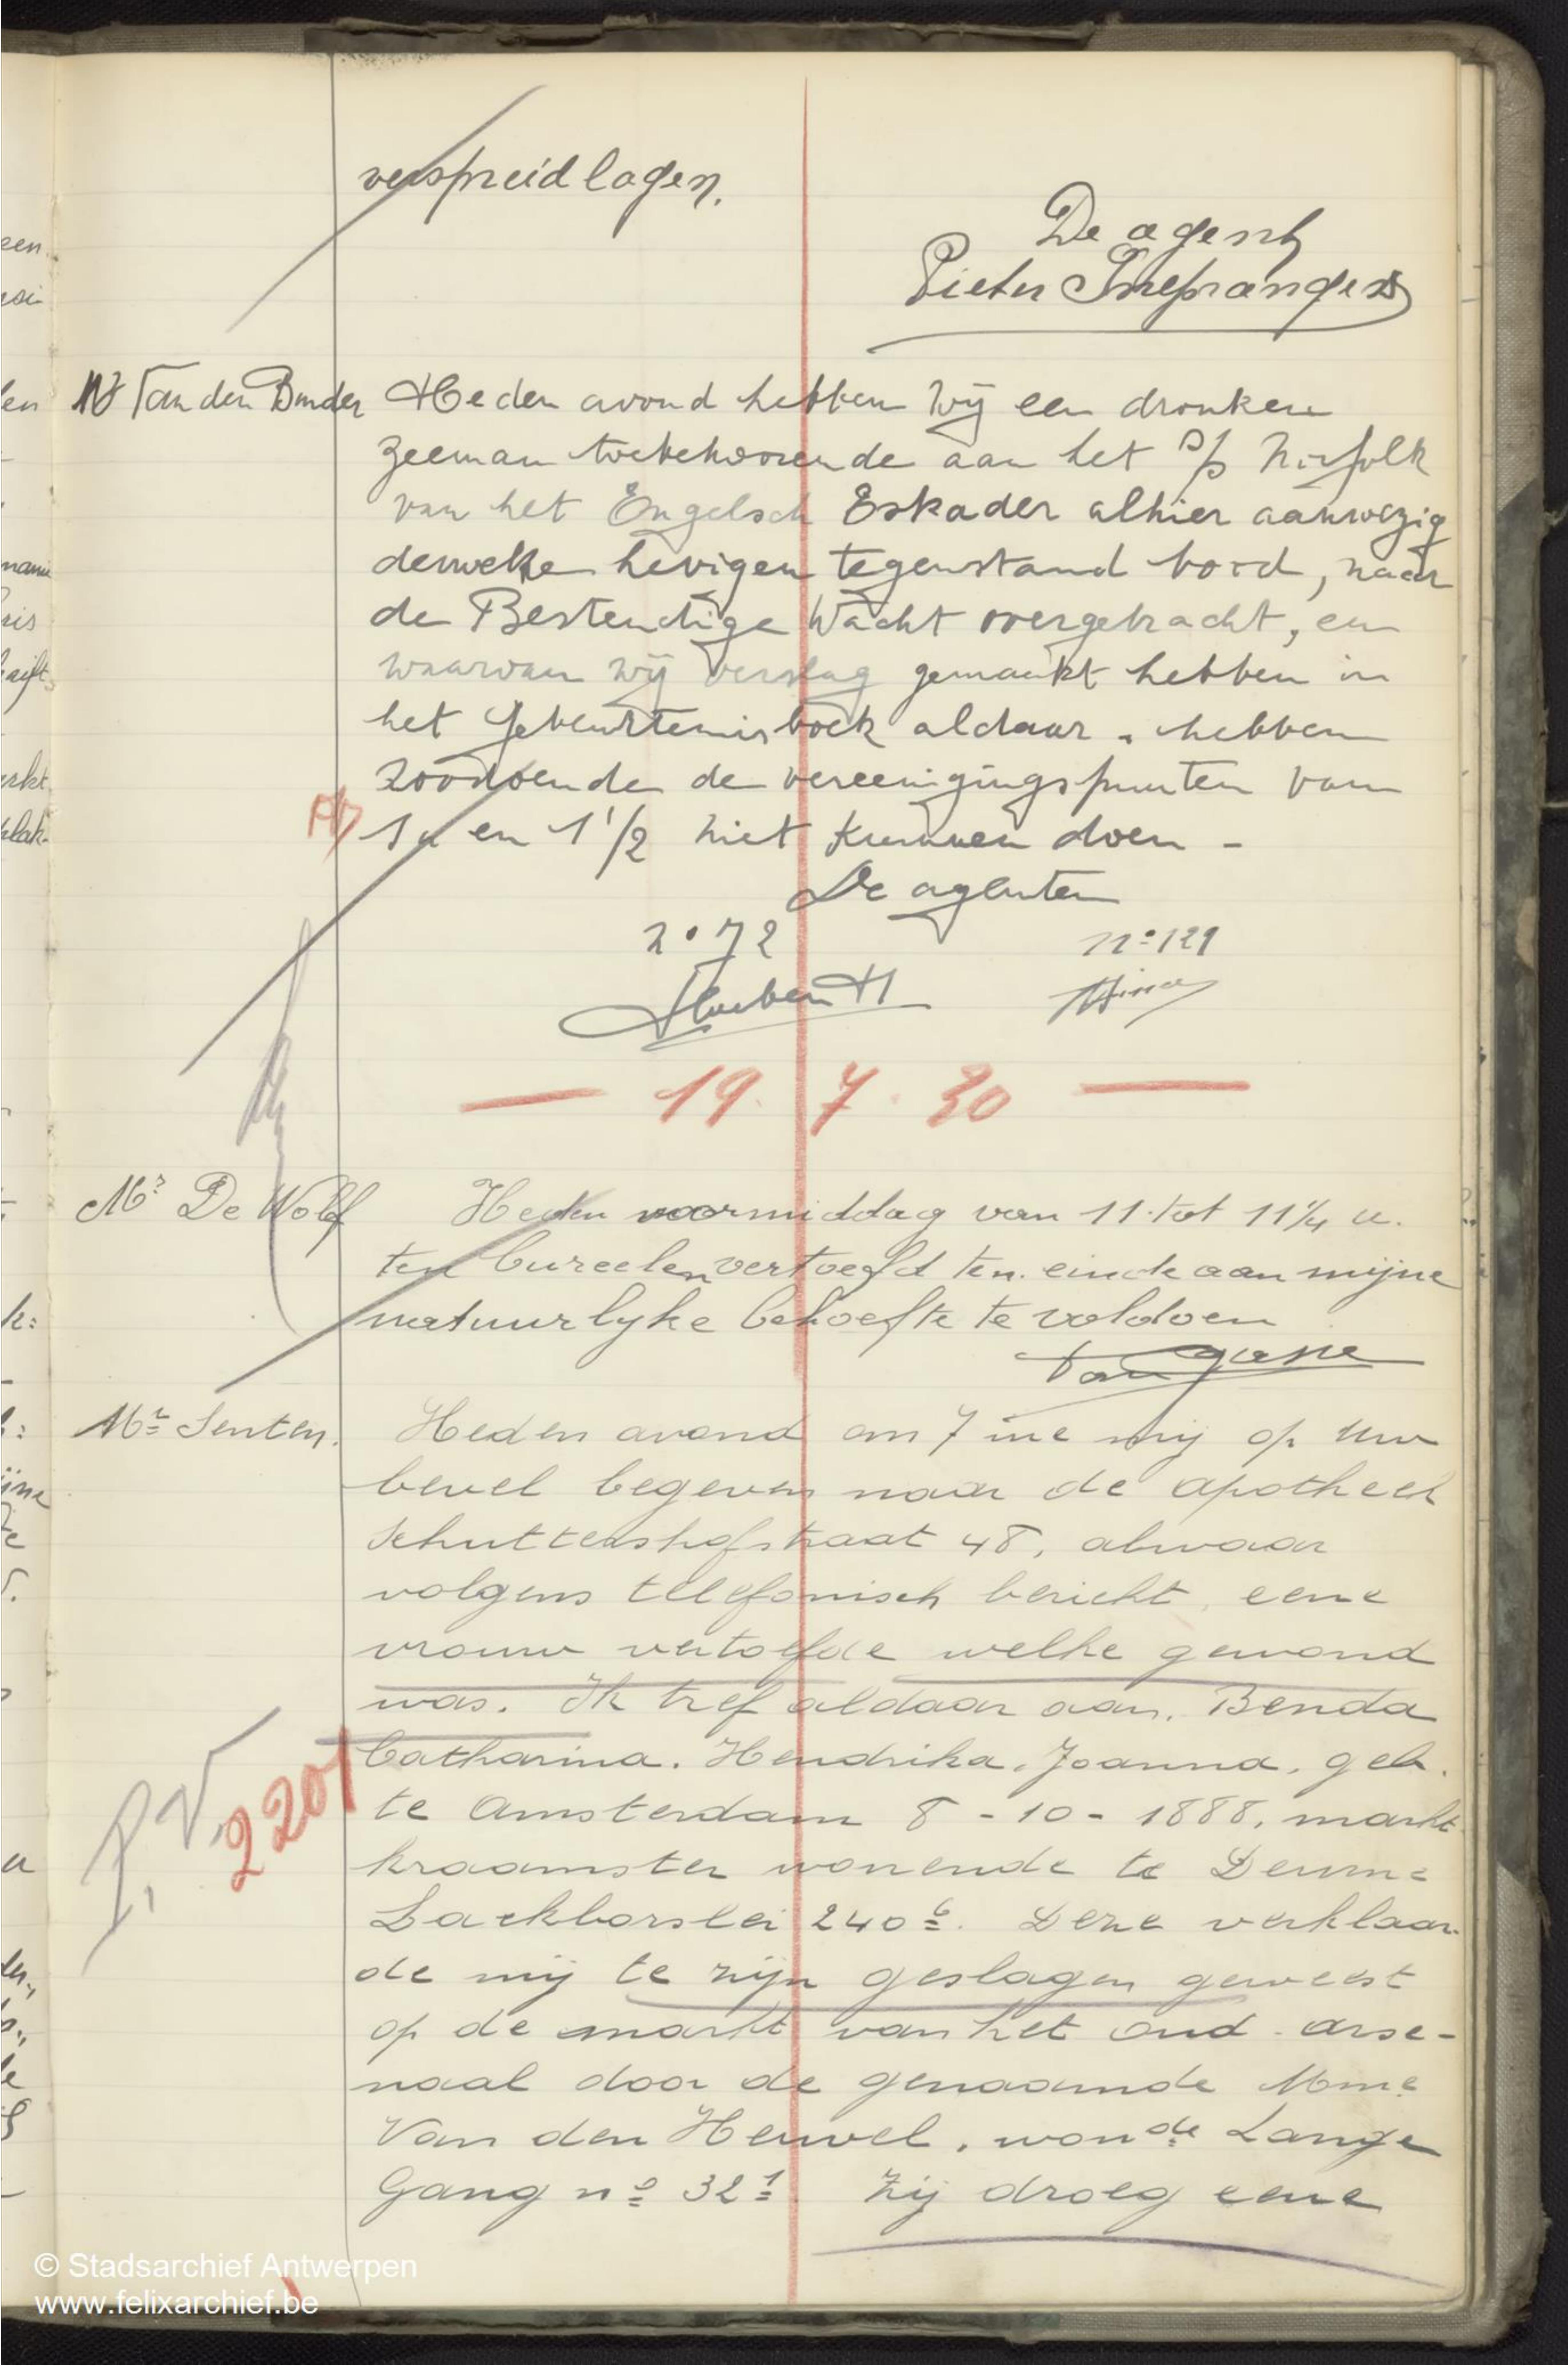 verspreid lagen.
De agent
Pieter
Mr Van den Bander
Heden avond hebben wij een dronken
zeeman toebehoorende aan het s/s Norfolk
van het Engelsch Eskader alhier aanwezig
derwelke hevigen tegenstand bood, naar
de Bestendige Wacht overgebracht, en
waarvan wij verslag gemaakt hebben in
het gebeurtenisboek aldaar. hebben
zoodoende de vereenigingspunten van
1 u en 1 1/2 niet kunnen doen -
De agenten
n° 72
n° 129
— 19. 7. 30 —
Mr De Wolf
Heden voormiddag van 11 tot 11 1/4 u.
ten bureelen vertoefd ten einde aan mijne
natuurlyke behoefte te voldoen
Mr Senten.
Heden avond om 7 ure mij op Uw
bevel begeven naar de apotheek
Schuttershofstraat 48, alwaar
volgens telefonisch bericht, eene
vrouw vertoefde welke gewond
was. Ik tref aldaar aan, Benda
Catharina. Hendrika, Joanna, geb.
te Amsterdam 8 - 10 - 1888, markt
P.V. 2201
kraamster wonende te Deurne
Lackborslei 240 6. Deze verklaar
de mij te zijn geslagen geweest
op de markt van het oud arse-
naal door de genaamde Mme
Van den Heuvel, wonde Lange
Gang n° 32 1. Zij droeg eene
© Stadsarchief Antwerpen
www.felixarchief.be